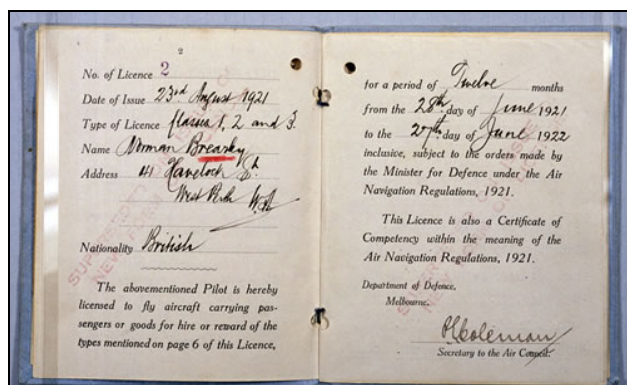 2
No. of Licence 2
Date of Issue 23rd August 1921
Type of Licence Classes 1, 2 and 3.
Name Norman Brearley
Address 41 Havelock St.
West Perth W.A
Nationality British
The abovementioned Pilot is hereby
licensed to fly aircraft carrying pas-
sengers or goods for hire or reward of the
types mentioned on page 6 of this Licence,
for a period of Twelve months
from the 28th day of June 1921
to the 27th day of June 1922
inclusive, subject to the orders made by
the Minister for Defence under the Air
Navigation Regulations, 1921.
This Licence is also a Certificate of
Competency within the meaning of the
Air Navigation Regulations, 1921.
Department of Defence,
Melbourne.
Coleman
Secretary to the Air Council.